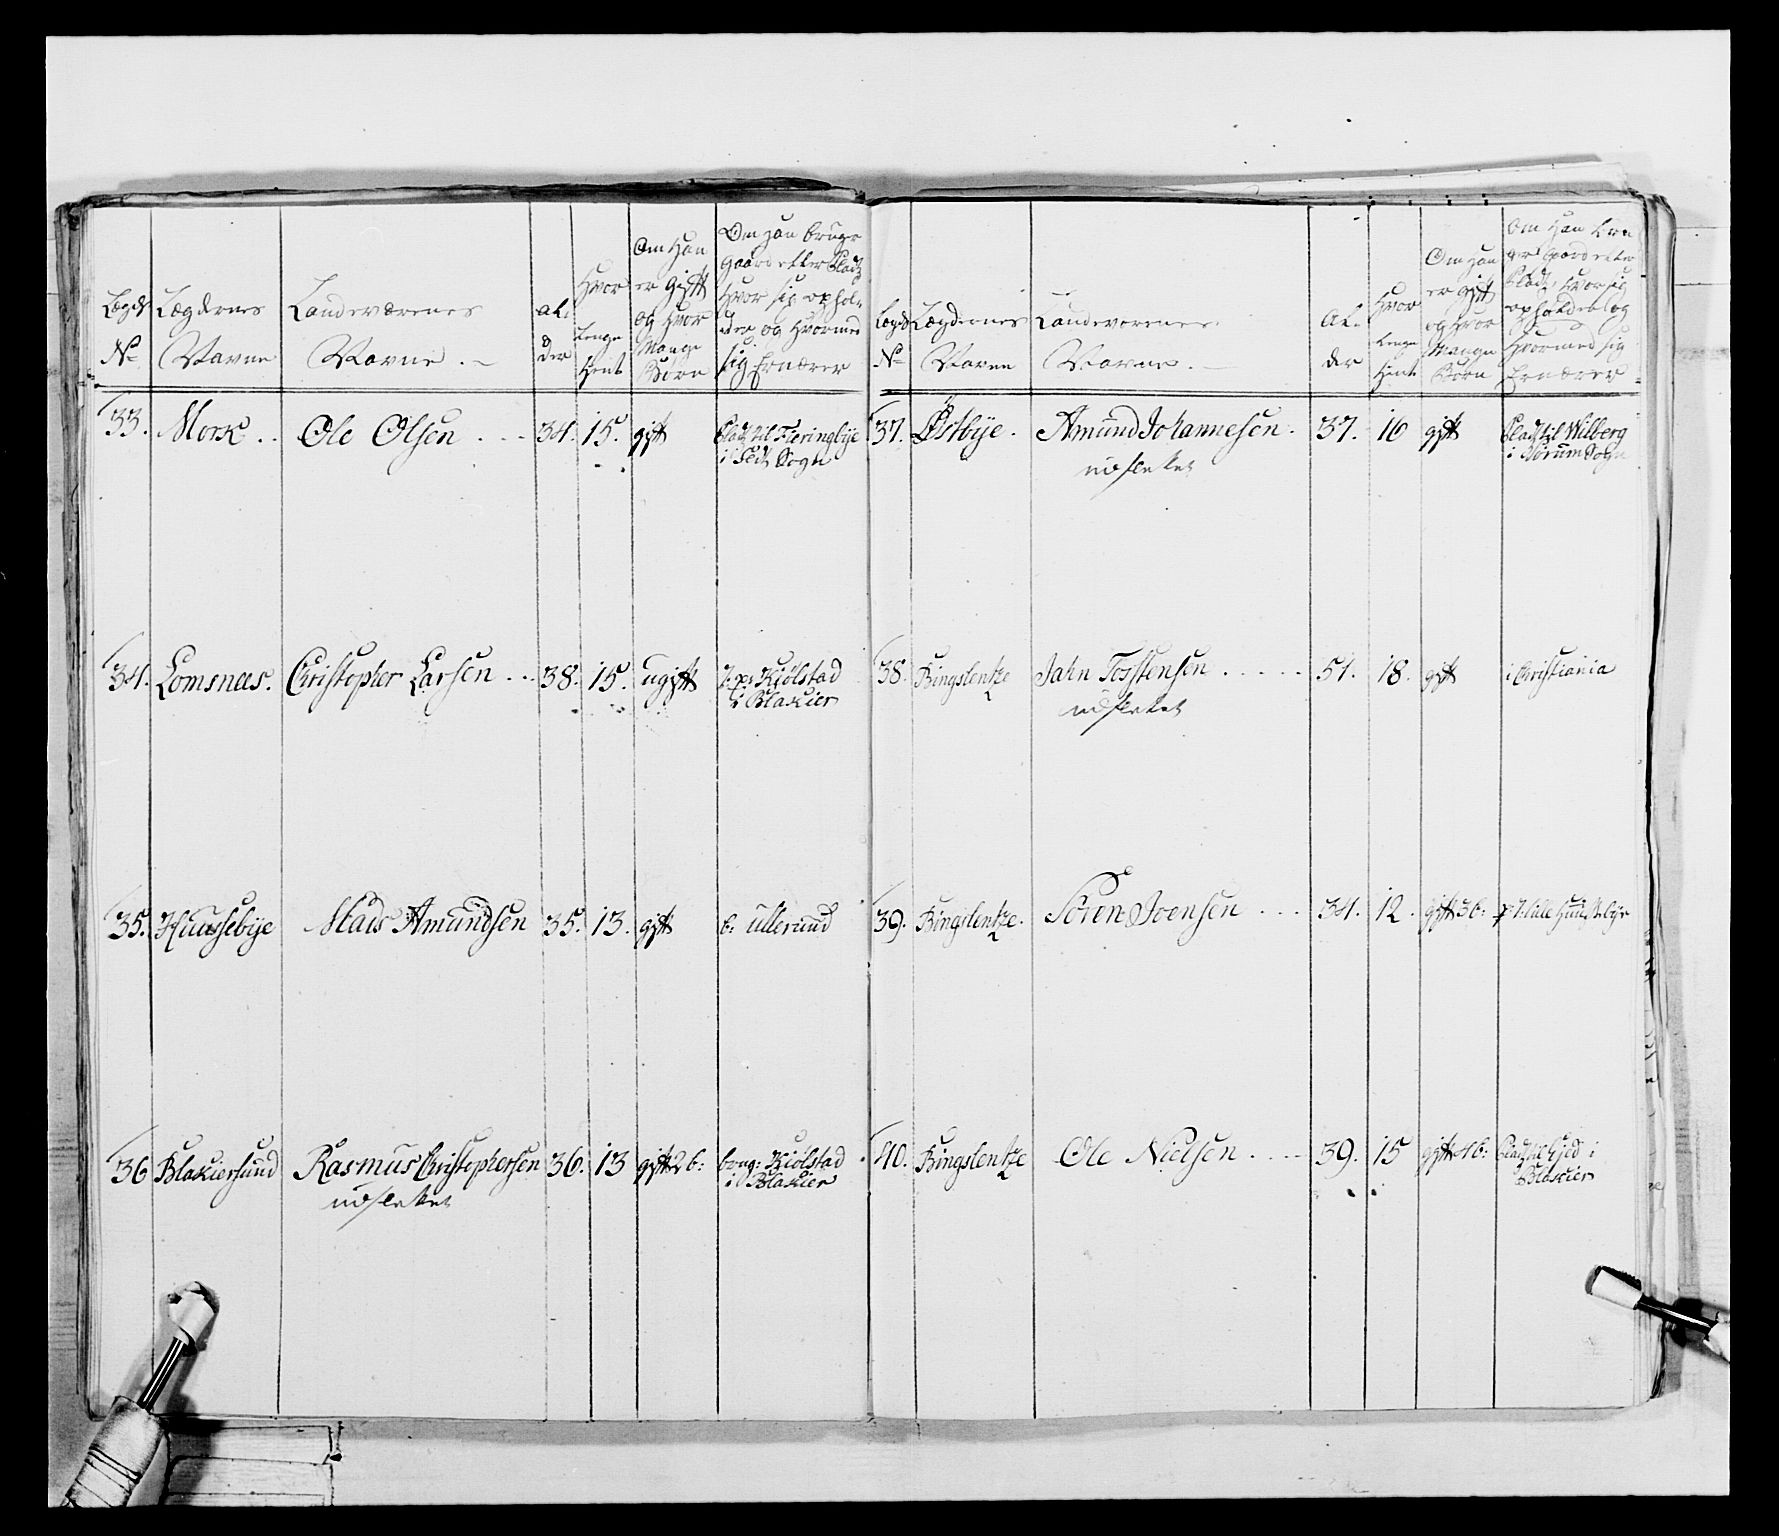 Lægds
No
Lægdernes
Navne
Landeværnes
Navne.
Al-
der
Hvor
lenge
tient
Om Han
er gift
og Hvor
Mange
Børn
Om Han bruger
gaard eller Pladz
Hvor sig ophol-
der og Hvormed
sig Ernærer
33. Mork.. Ole Olsen... 34. 15. gift Pladz til Fieringbye
i Fedt Sogn
34. Lomsnæs. Christopher Larsen... 38. 15. ugift J: pr Kiølstad
i Blakier
35. Huusebye Mads Amundsen 35. 13. gift b: Ullerund
36 Blakiersund Rasmus Christophersen 36. 13 gift 2 b: brug: Kiølstad
i Blakier
udslettet
Lægds
No
Lægdernes
Navne
Landevernes
Navne.
Al-
der
Hvor
lenge
tient
Om Han
er gift
og Hvor
Mange
Børn
Om Han bru
ger Gaard eller
Pladz, Hvor sig
opholder og
Hvormed sig
Ernærer
37. Østbye. Amund Johannesen. 37. 16 gift Pladz til Wilberg
udslettet i Sørum Sogn
38. Bingslentze Jahn Tosstensen..... 51. 18. gift i Christiania
udslettet
39. Bingslentze. Søren Joensen... 34. 12. gift 3 b: Lille Huusebye
40. Bingslentze Ole Nielsen.... 39. 15 gift 4 b: Pladz til i
Blakier